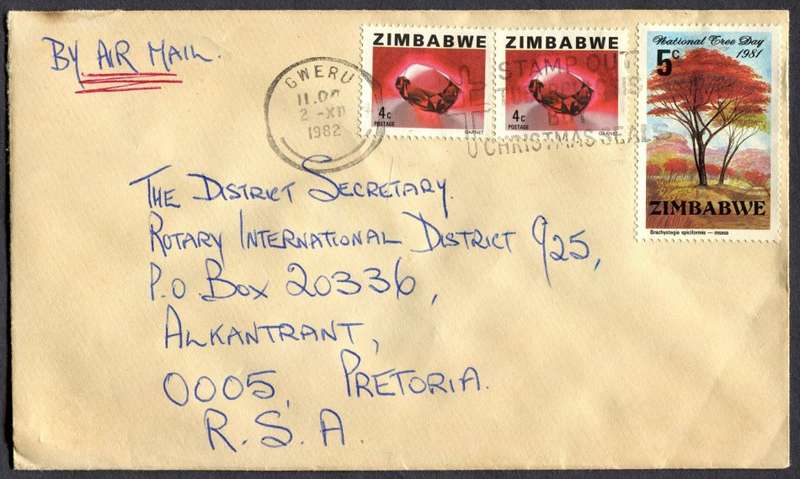 BY AIR MAIL.
GWERU
11.00
2 -XII
1982
ZIMBABWE
4c
POSTAGE
GARNET
ZIMBABWE
4c
POSTAGE
GARNET
STAMP OUT
BUY
CHRISTMAS SEALS
National Tree Day
1981
5c
ZIMBABWE
Brachystegia spiciformis — msasa
THE DISTRICT SECRETARY.
ROTARY INTERNATIONAL DISTRICT 925,
P.O BOX 20336,
ALKANTRANT,
0005, PRETORIA.
R.S.A.